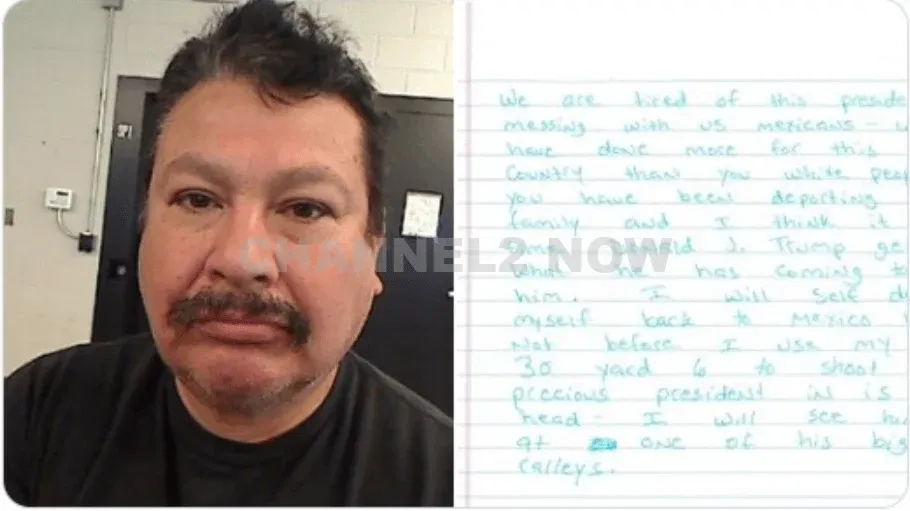 We are tired of this preside
messing with us mexicans -
have done more for this
country than you white peop
you have been deporting
family and I think it
Donald J. Trump ge
what he has coming to
him. I will self de
myself back to mexico
Not before I use my
30 yard 6 to shoot
precious president in is
head - I will see hi
at one of his big
ralleys.
CHANNEL2 NOW